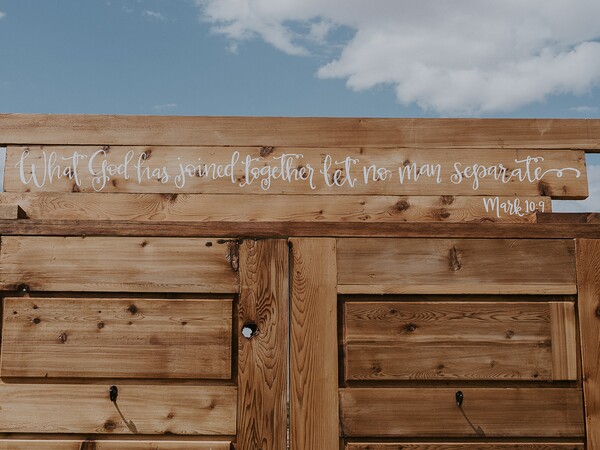 What God has joined together let no man separate
Mark 10:9